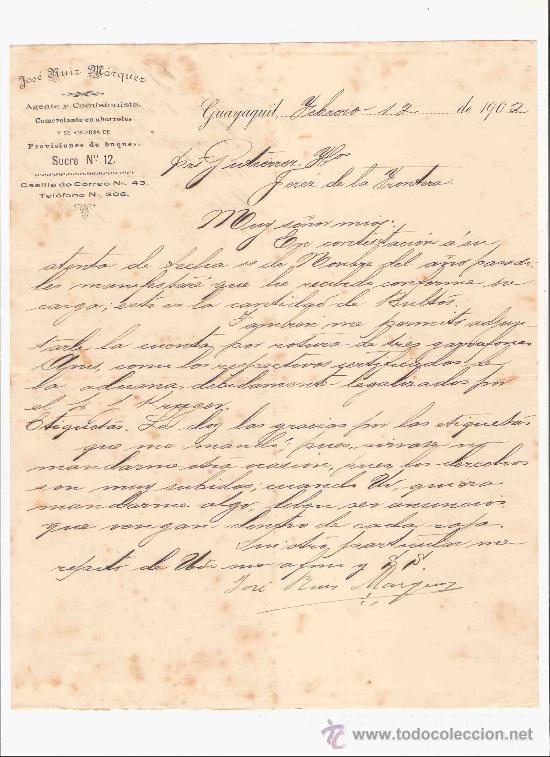 José Ruiz Márquez
Agente y Comisionista.
Comerciante en abarrotes
Y SE ENCARGA DE
Provisiones de buques.
Sucre Nº 12.
Casilla de Correo No. 43.
Teléfono N. 306.
Guayaquil, Febrero 12 de 1902
Gutiérrez Hº
Jeréz de la Frontera.
Muy señor mío:
En contestación á su
atenta de fecha de Novbre del año pasado
les manifestaré que he recibido conforme su
cargo; esto es la cantidad de Bultos.
Tambien me permito adjun-
tarle la cuenta por rotura de tres garrafones
Anis, como los respectivos certificados de
la aduana, debidamente legalizados por
el
Etiquetas. Le doy las gracias por las etiquetas
que me mandó, pues, sirvase no
mandarme otra ocasion, pues los derechos
son muy subidos; cuando Ud. quiera
mandarme algo, deben ser anuncios
que vengan dentro de cada caja.
Sin otro particular me
repito de Uds. mo afmo y S. S.
José Ruiz Márquez
www.todocoleccion.net